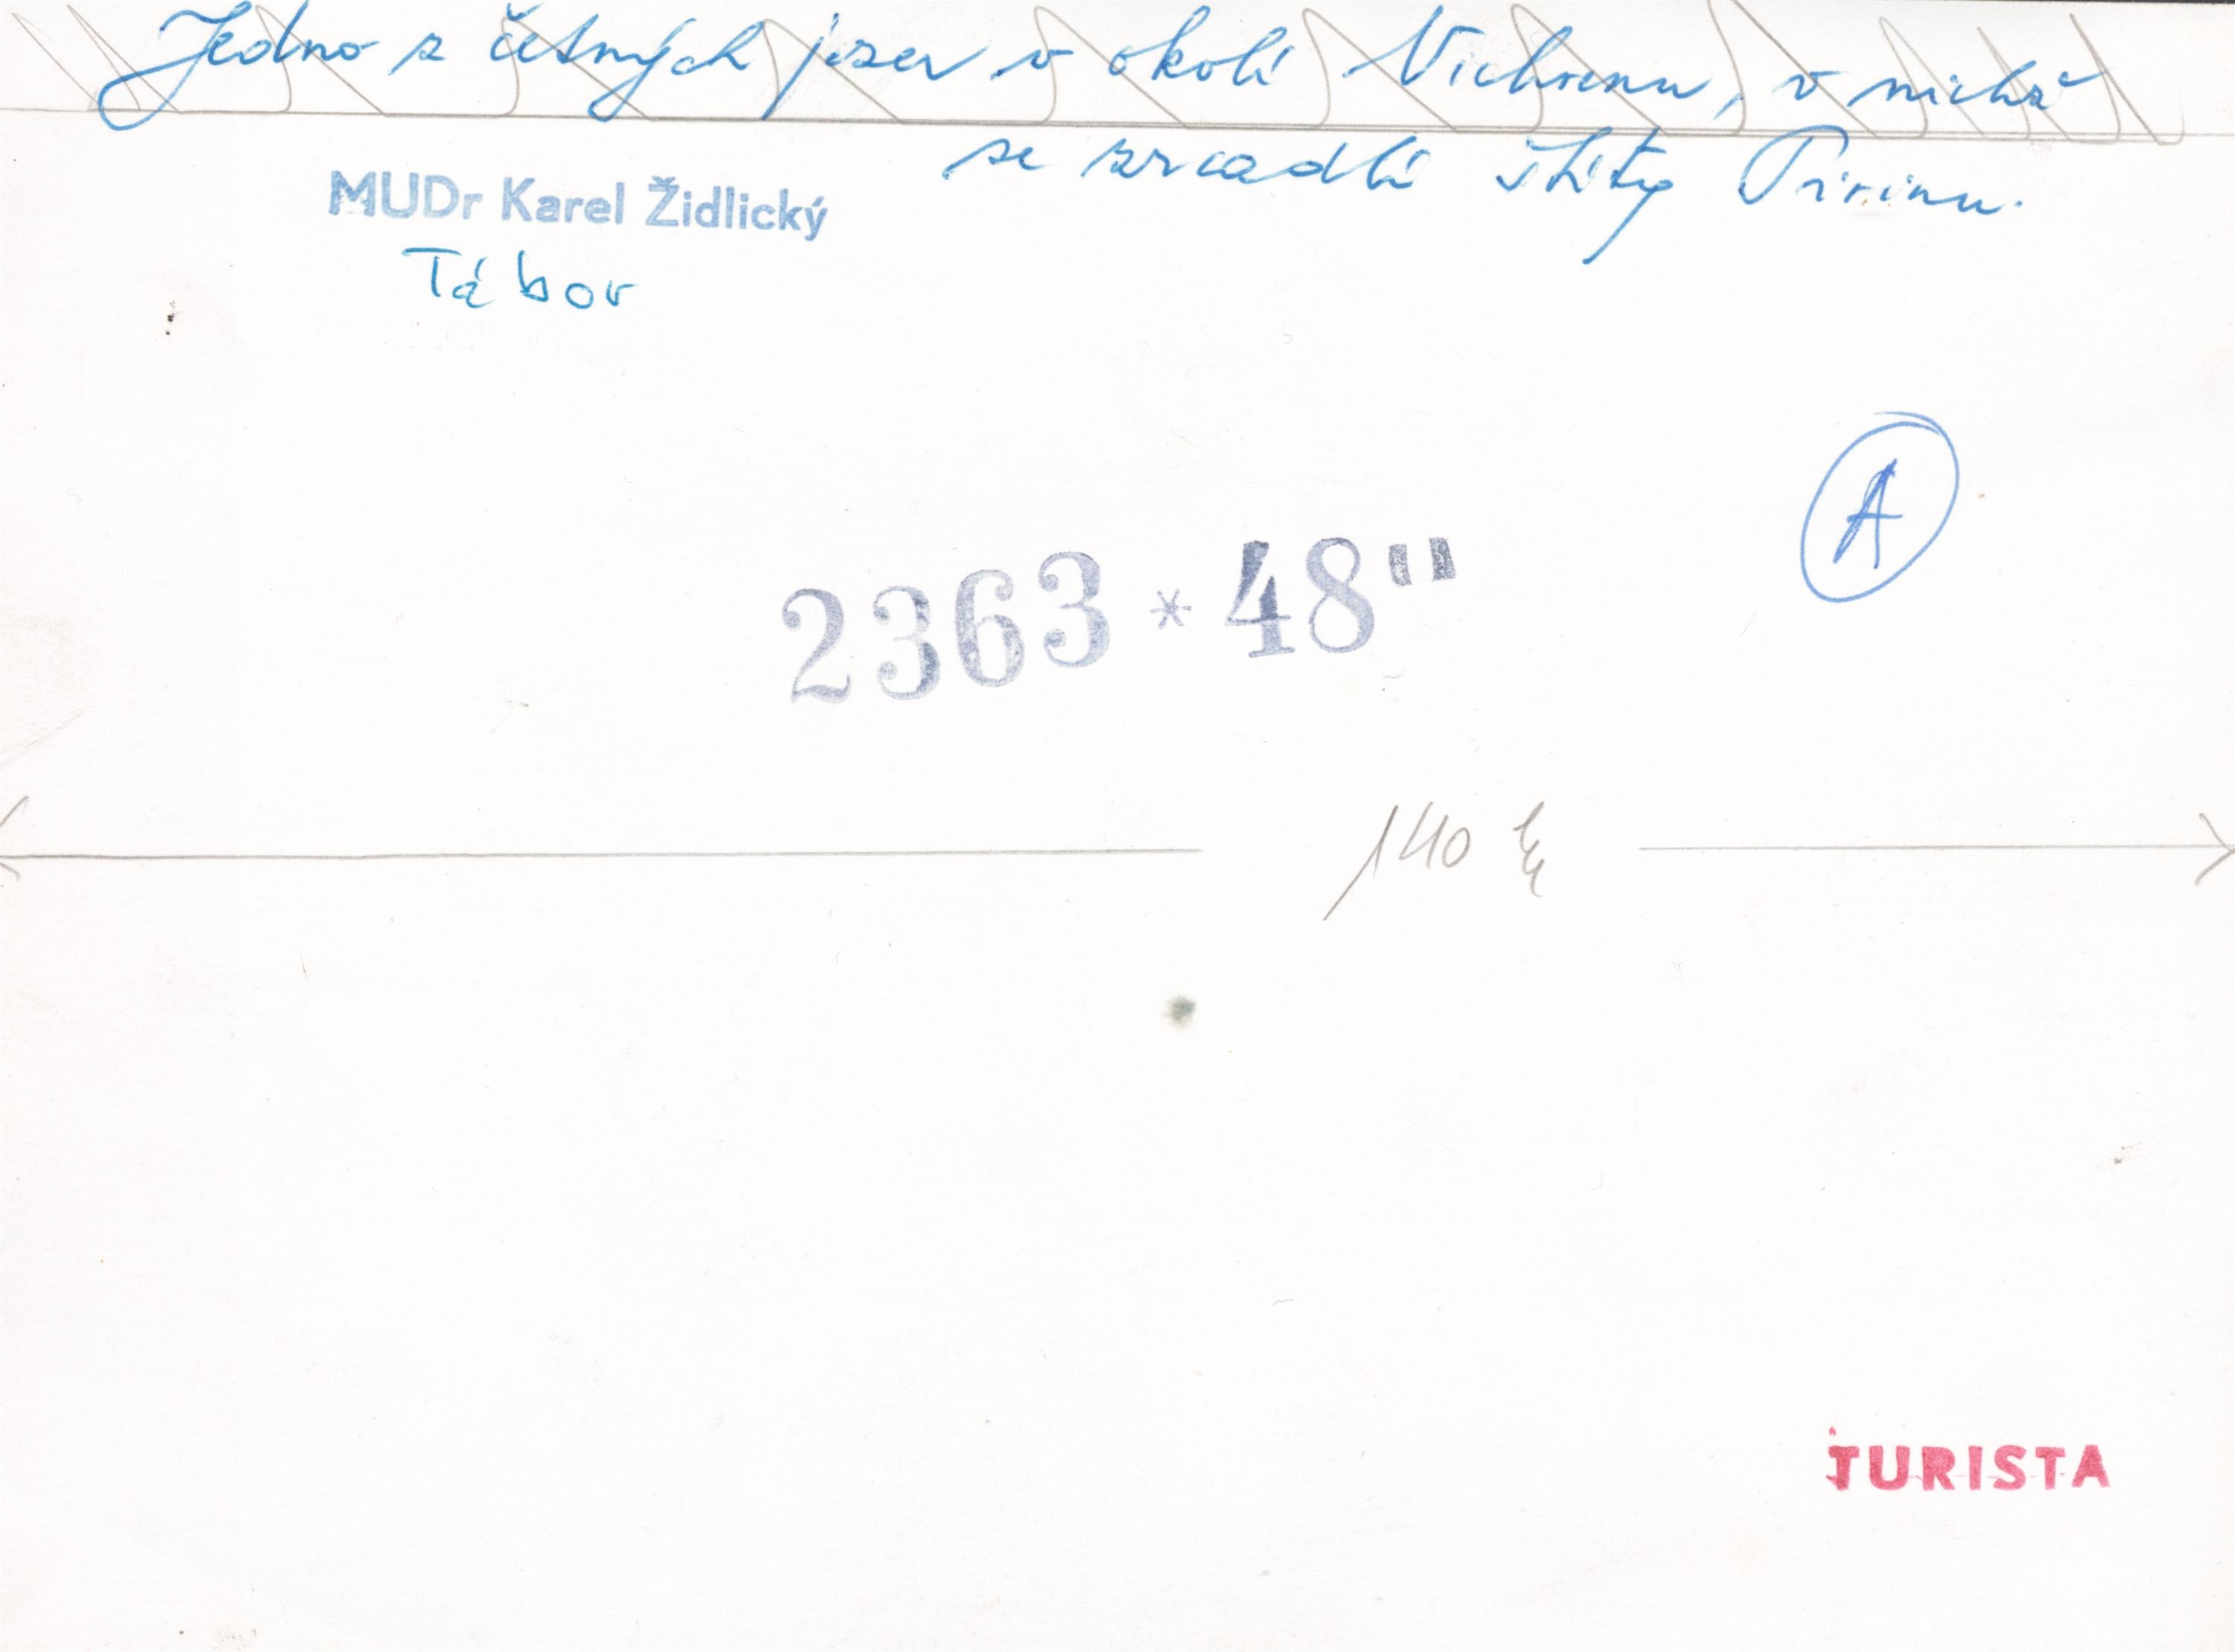 Jedno z četných jezer v okolí Vichrenu, v nichž
se zrcadlí štíty Pirinu.
MUDr Karel Židlický
Tábor
A
2363 * 48"
140
TURISTA